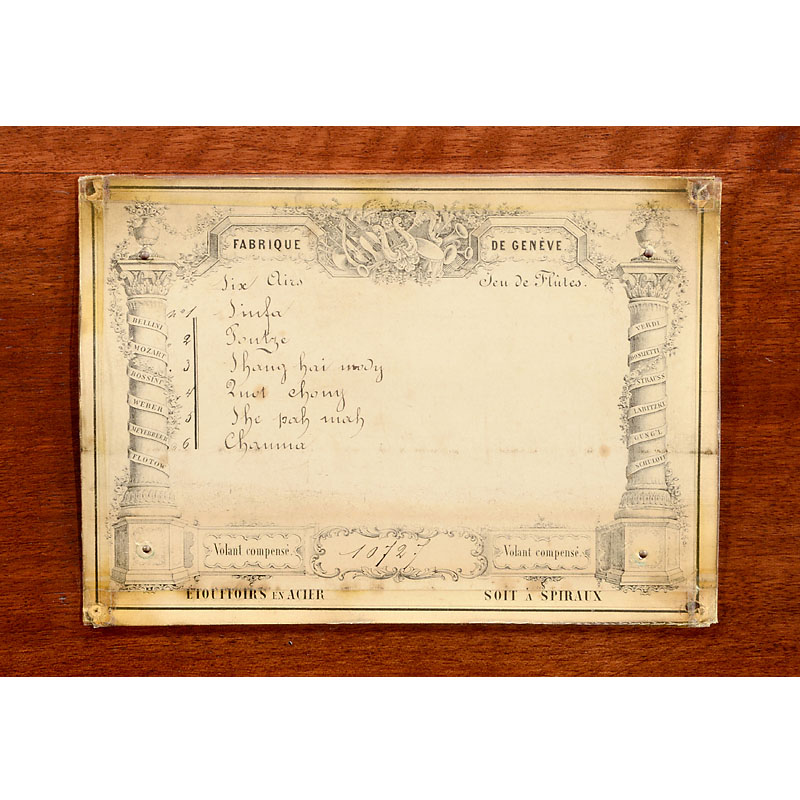 FABRIQUE DE GENÈVE
Six Airs Jeu de Flûtes.
Nº 1 Sinfa
2
3 Shang hai mody
4 chony
5 She pah mah
6 Chamma
BELLINI
MOZART
ROSSINI
WEBER
MEYERBEER
FLOTOW
VERDI
DONIZETTI
STRAUSS
LABITZKI
GUNGL
SCHULOFF
Volant compensé. 10727 Volant compensé.
ÉTOUFFOIRS EN ACIER SOIT À SPIRAUX